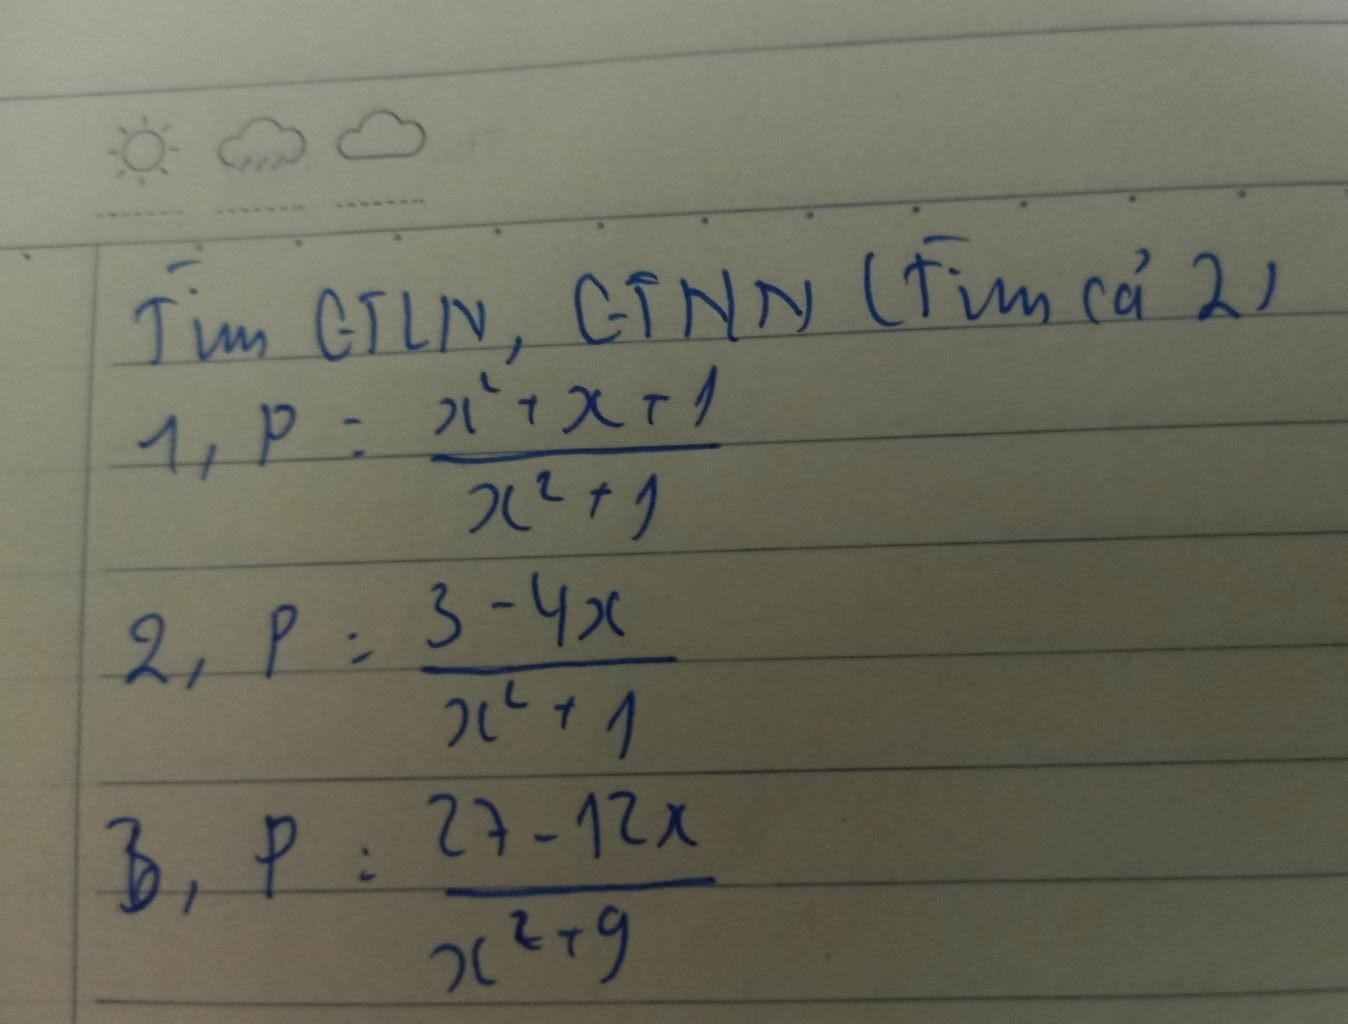 Tìm GTLN, GTNN (Tìm cả 2)
1, P = \frac{x²+x+1}{x²+1}
2, P = \frac{3-4x}{x²+1}
3, P = \frac{27-12x}{x²+9}